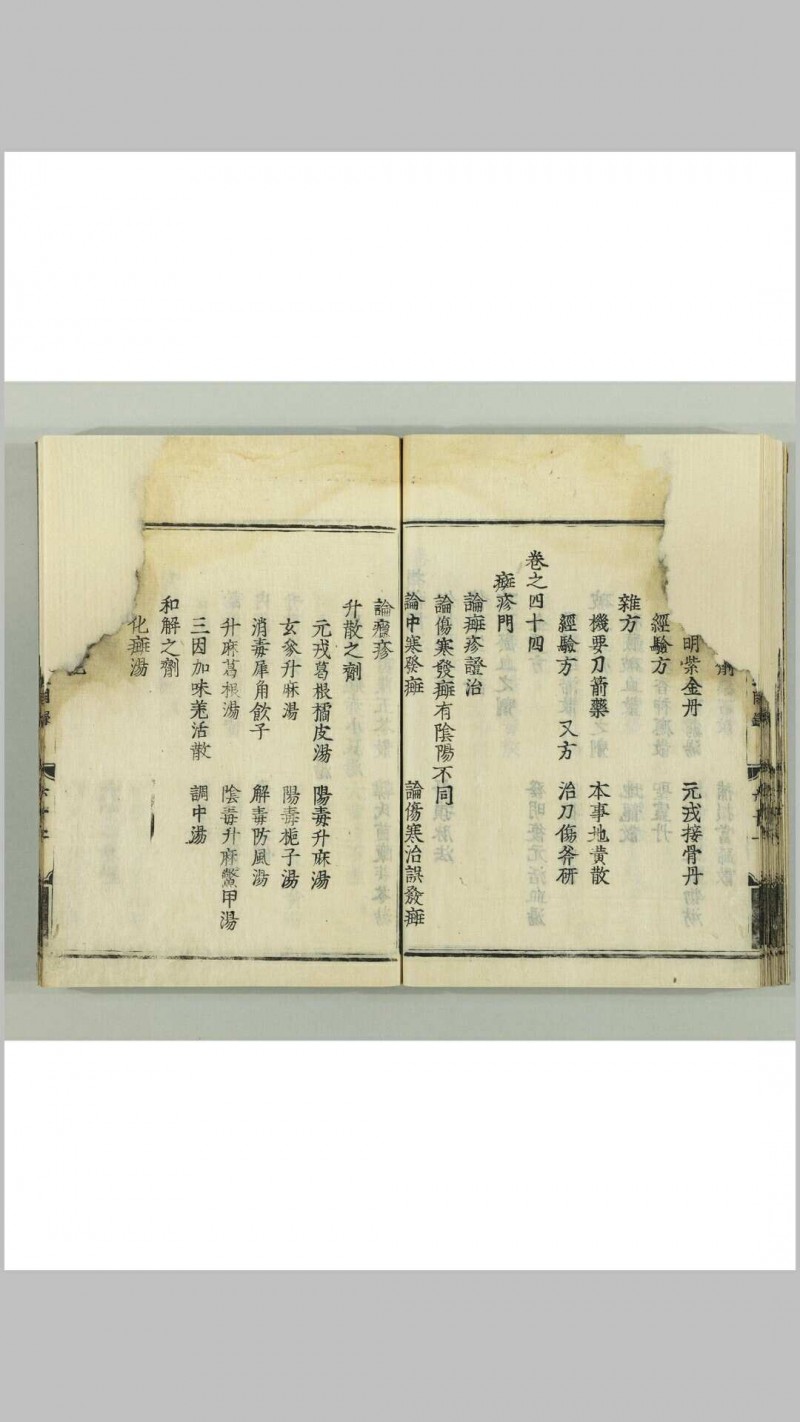 明紫金丹 元戎接骨丹
經驗方
雜方
機要刀箭藥 本事地黄散
經驗方 又方 治刀傷斧斫
卷之四十四
癍疹門
論癍疹證治
論傷寒發癍有陰陽不同
論中寒發癍 論傷寒治誤發癍
論癮疹
升散之劑
元戎葛根橘皮湯 陽毒升麻湯
玄參升麻湯 陽毒梔子湯
消毒犀角飲子 解毒防風湯
升麻葛根湯 陰毒升麻鱉甲湯
三因加味羌活散 調中湯
和解之劑
化癍湯